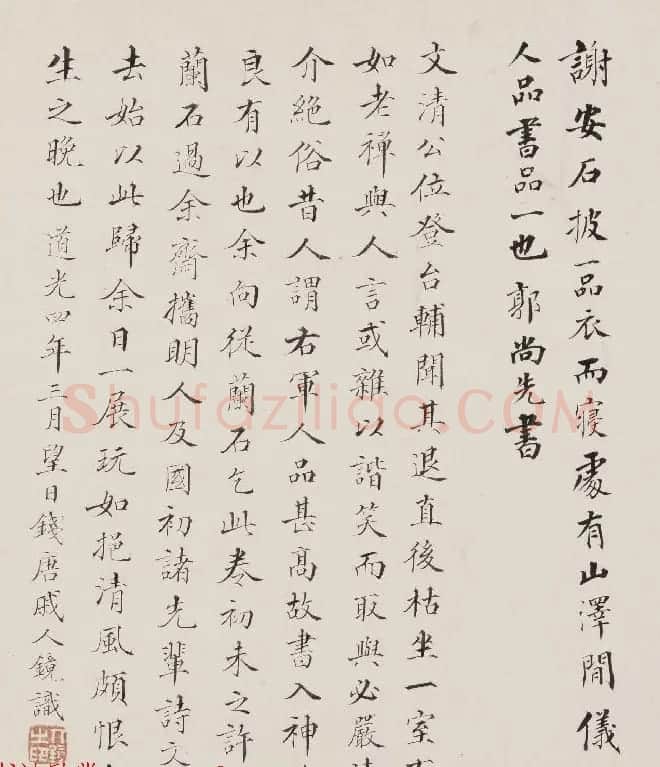 謝安石披一品衣而寝處有山澤間儀
人品書品一也 郭尚先書
文清公位登台輔聞其退直後枯坐一室
如老禅與人言或雜以諧笑而取與必嚴
介絕俗昔人謂右軍人品甚高故書入神
良有以也余向從蘭石乞此卷初未之許
蘭石過余齋攜明人及國初諸先輩詩文
去始以此歸余日一展玩如挹清風頗恨
生之晚也道光四年三月望日錢唐戚人鏡識
Shufaziliao.COM